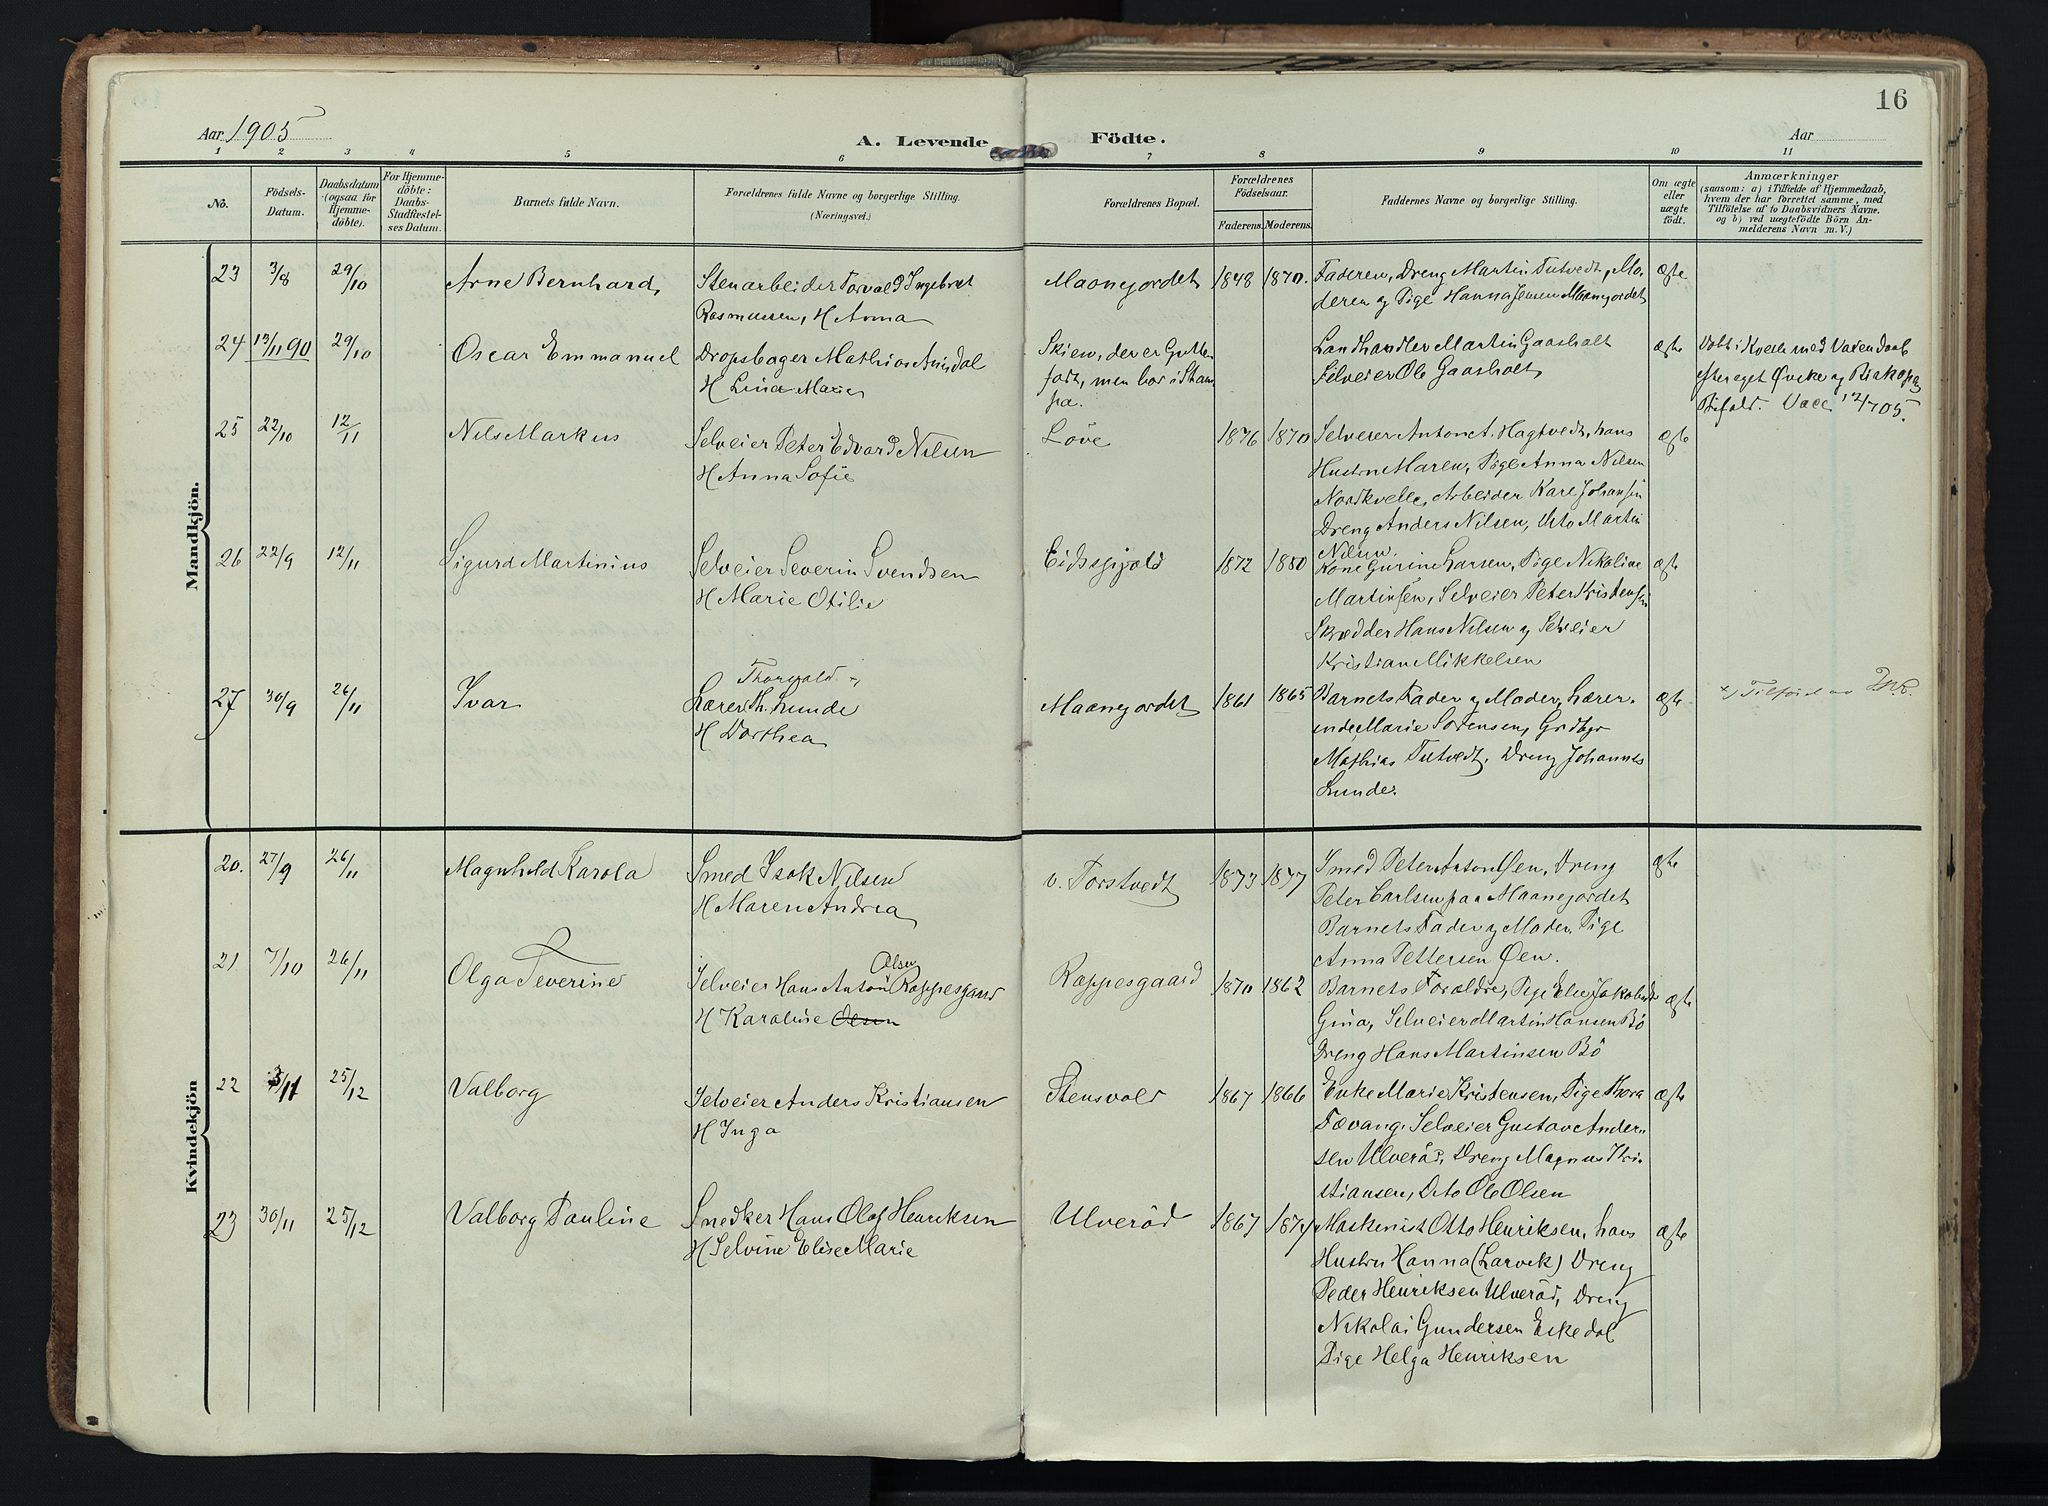 16
Aar 1905
A. Levende Födte.
Aar
1 2 3 4 5 6 7 8 9 10 11
No.
Födsels-
Datum.
Daabsdatum
(ogsaa for
Hjemme-
døbte).
For Hjemme-
döbte:
Daabs-
Stadfæstel-
ses Datum.
Barnets fulde Navn.
Forældrenes fulde Navne og borgerlige Stilling.
(Næringsvei.)
Forældrenes Bopæl.
Forældrenes
Födselsaar.
Faderens. Moderens.
Faddernes Navne og borgerlige Stilling.
Om ægte
eller
uægte
födt.
Anmærkninger
(saasom: a) i Tilfælde af Hjemmedaab,
hvem der har forrettet samme, med
Tilföielse af to Daabsvidners Navne.
og b) ved uægtefödte Börn An-
melderens Navn m. V.)
Mandkjön.
23 3/8 29/10 Arne Bernhard,
Stenarbeider Torvald Ingebret
Rasmussen, H Anna
Maanejordet 1848 1870.
Faderen, Dreng Martin Tutvedt, Mo-
deren og Pige Hanna Jensen Maanejordet
ægte
24 13/11 90 29/10 Oscar Emmanuel
Dropsbager Mathias
H Lina Marie
Skien, der er Gutten
født, men bor i Stam
pa.
Landhandler Martin Gaasholt
Selveier Ole Gaasholt
ægte
Døbt i Kvelle med Vaxen daab
efter eget Ønske og Biskopag
Bifald. Vacc 12/7 05.
25 22/10 12/11 Nils Markus
Selveier Peter Edvard Nilsen
H Anna Sofie
Løve 1876 1870
Selveier Anton A. Hagtvedt, hans
Hustru Maren, Pige Anna Nilsen
Nordkvelle, Arbeider Karl Johansen
Dreng Anders Nilsen, Dito Martin
Nilsen.
ægte
26 22/9 12/11 Sigurd Martinius
Selveier Severin Svendsen
H Marie Otilie
Eidsfjeld 1872 1880
Kone Gurine Larsen, Pige Nikoline
Martinsen, Selveier Peter Kristensen
Skrædder Hans Nilsen og Selveier
Kristian Mikkelsen
ægte
27 30/9 26/11 Ivar
Thorvald
Lærer Th. Lunde
H Dorthea
Maanejordet 1861 1865
Barnets Fader og Moder, Lærer-
inde Marie Sørensen, Grdbgr
Mathias Tutvedt, Dreng Johannes
Lunde.
ægte
Tilføiet av
Kvindekjön
20. 27/9 26/11 Magnhild Karola
Smed Isak Nilsen
H Maren Andrea
v. Torstvedt 1873 1877
Smed Peter Anton Øen, Dreng
Peter Carlsen paa Maanejordet
Barnets Fader og Moder, Pige
Anna Pettersen Øen.
ægte
21 7/10 26/11 Olga Severine
Olsen
Selveier Hans Anton Rappesgaard
H Karoline Olsen
Rappesgaard 1870 1862
Barnets Forældre, Pige Else Jakobine
Gina, Selveier Martin Hansen Bö
Dreng Hans Martinsen Bö
ægte
22 5/11 25/12 Valborg
Selveier Anders Kristiansen
H Inga
Stensvold 1867 1866
Enke Marie Kristensen, Pige Thora
Fævang. Selveier Gustav Ander-
sen Ulveröd, Dreng Magnus Kri-
stiansen, Dito Ole Olsen
ægte
23 30/11 25/12 Valborg Pauline
Snedker Hans Olaf Henriksen
H Selvine Elise Marie
Ulveröd 1867 1874
Maskinist Otto Henriksen, hans
Hustru Hanna (Larvik) Dreng
Peder Henriksen Ulveröd, Dreng
Nikolai Gundersen Eikedal
Pige Helga Henriksen
ægte